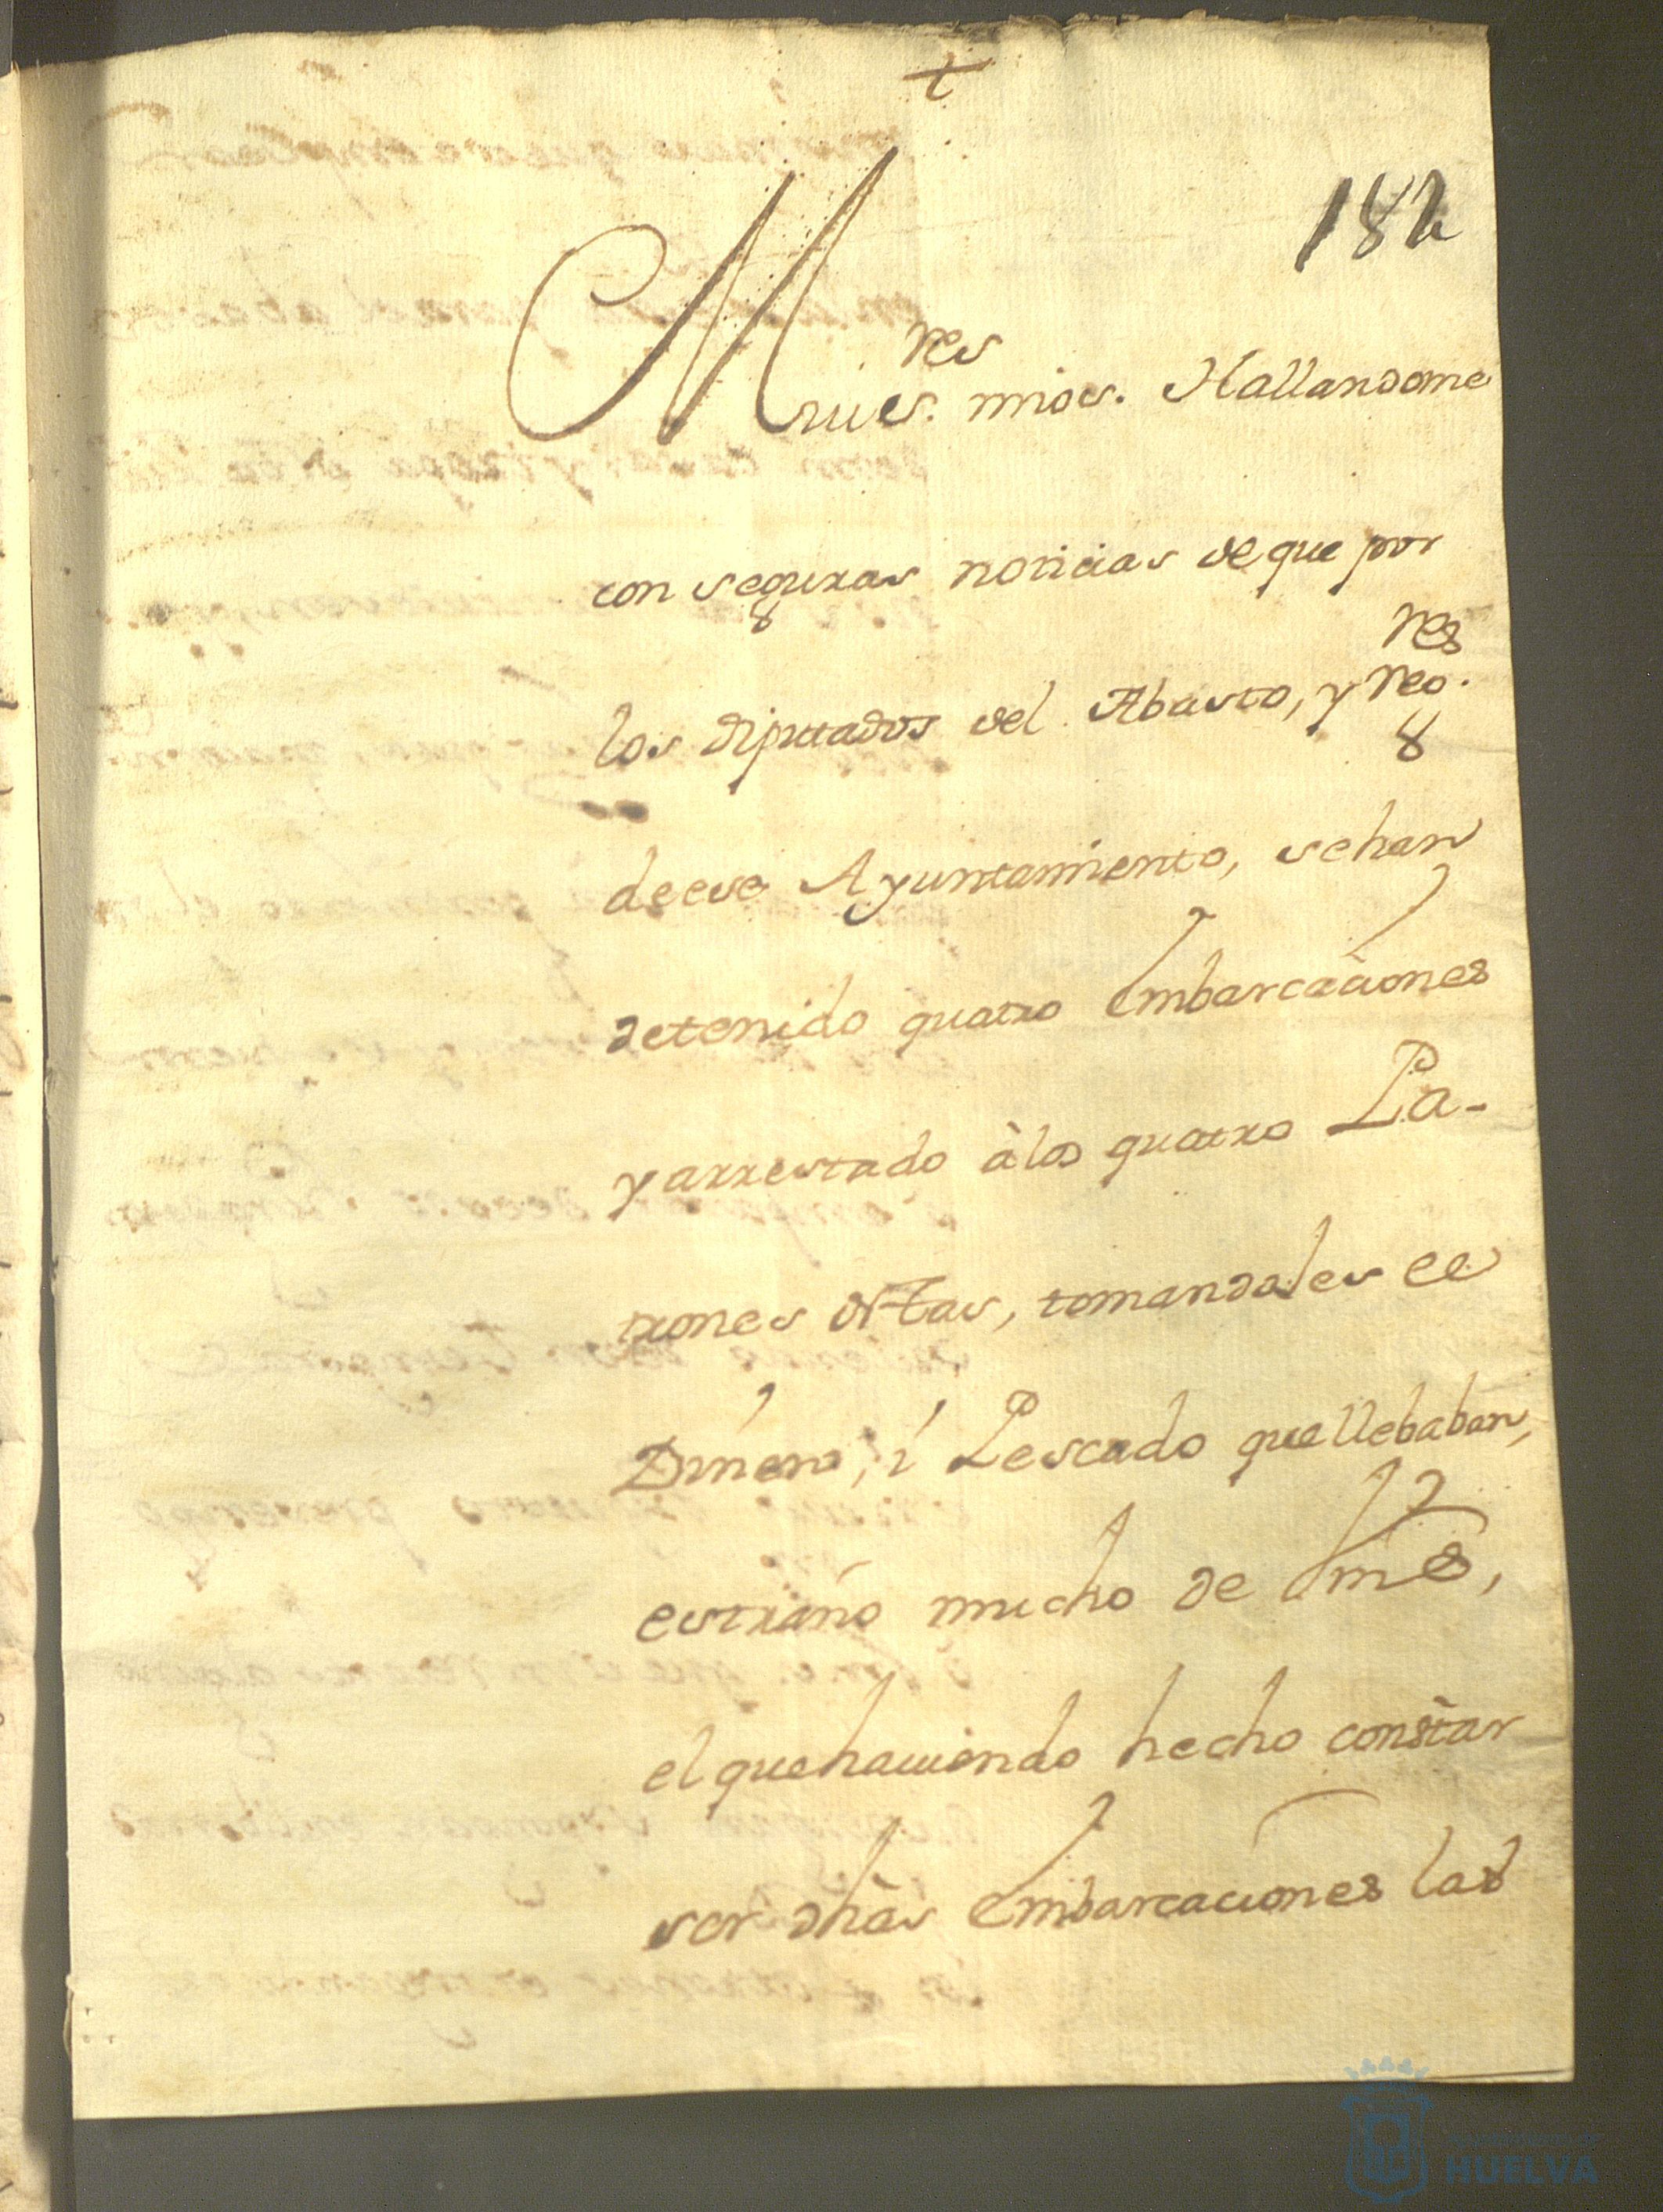 +
182
res
Mui es. mios. Hallandome
con seguras noticias de que por
res
los diputados del Abasto, y reo.
de ese Ayuntamiento, se han
detenido quatro Embarcaciones
y arrestado à los quatro Pa-
trones dhas, tomandoles el
Dinero, i Pescado que llebaban,
estraño mucho de Vms,
el que haviendo hecho constar
ser dhas Embarcaciones las
HUELVA